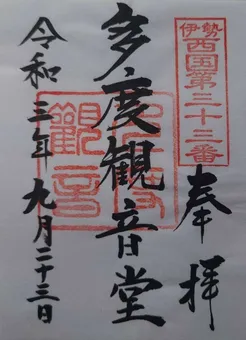 伊勢
西国第三十三番
奉拝
多度観音堂
令和三年九月二十三日